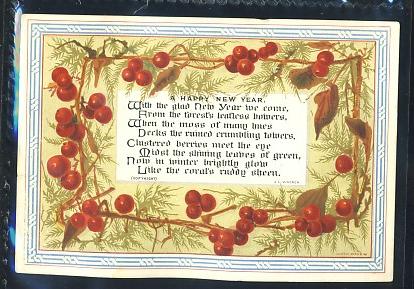 A HAPPY NEW YEAR.
With the glad New Year we come,
From the forest's leafless bowers,
When the moss of many hues
Decks the ruined crumbling towers,
Clustered berries meet the eye
Midst the shining leaves of green,
Now in winter brightly glow
Like the coral's ruddy sheen.
(COPYRIGHT)